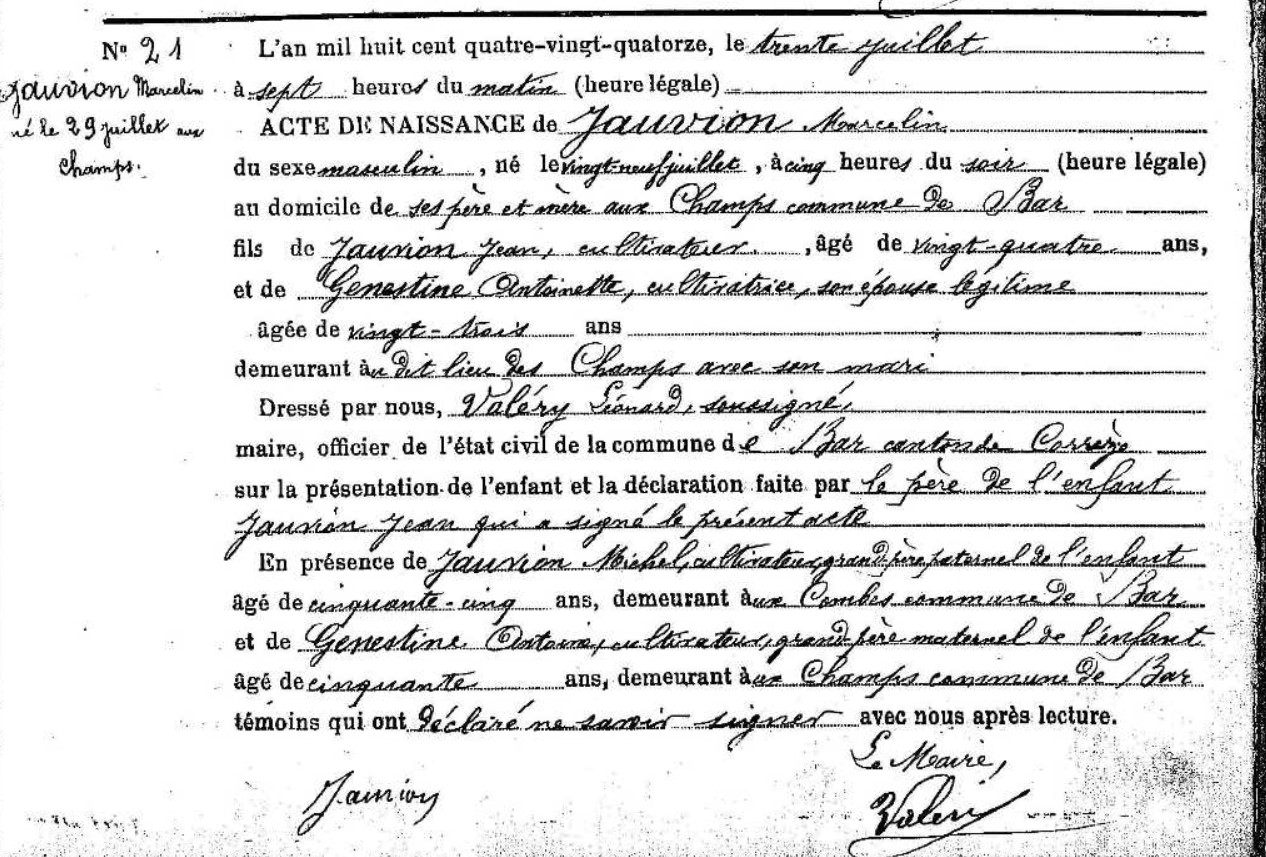 Nº 21
Jauvion Marcelin
né le 29 juillet aux
Champs.
L'an mil huit cent quatre-vingt-quatorze, le trente juillet
à sept heures du matin (heure légale)
ACTE DE NAISSANCE de Jauvion Marcelin
du sexe masculin, né le vingt-neuf juillet, à cinq heures du soir (heure légale)
au domicile de ses père et mère aux Champs commune de Bar
fils de Jauvion Jean, cultivateur, âgé de vingt-quatre ans,
et de Genestine Antoinette, cultivatrice, son épouse légitime
âgée de vingt-trois ans
demeurant au dit lieu des Champs avec son mari
Dressé par nous, Valéry Léonard, soussigné,
maire, officier de l'état civil de la commune de Bar canton de Corrèze
sur la présentation de l'enfant et la déclaration faite par le père de l'enfant
Jauvion Jean qui a signé le présent acte
En présence de Jauvion Michel, cultivateur, grand-père paternel de l'enfant
âgé de cinquante-cinq ans, demeurant aux Combes commune de Bar
et de Genestine Antoine, cultivateur, grand-père maternel de l'enfant
âgé de cinquante ans, demeurant aux Champs commune de Bar
témoins qui ont déclaré ne savoir signer avec nous après lecture.
Le Maire,
Jauvion
Valéri